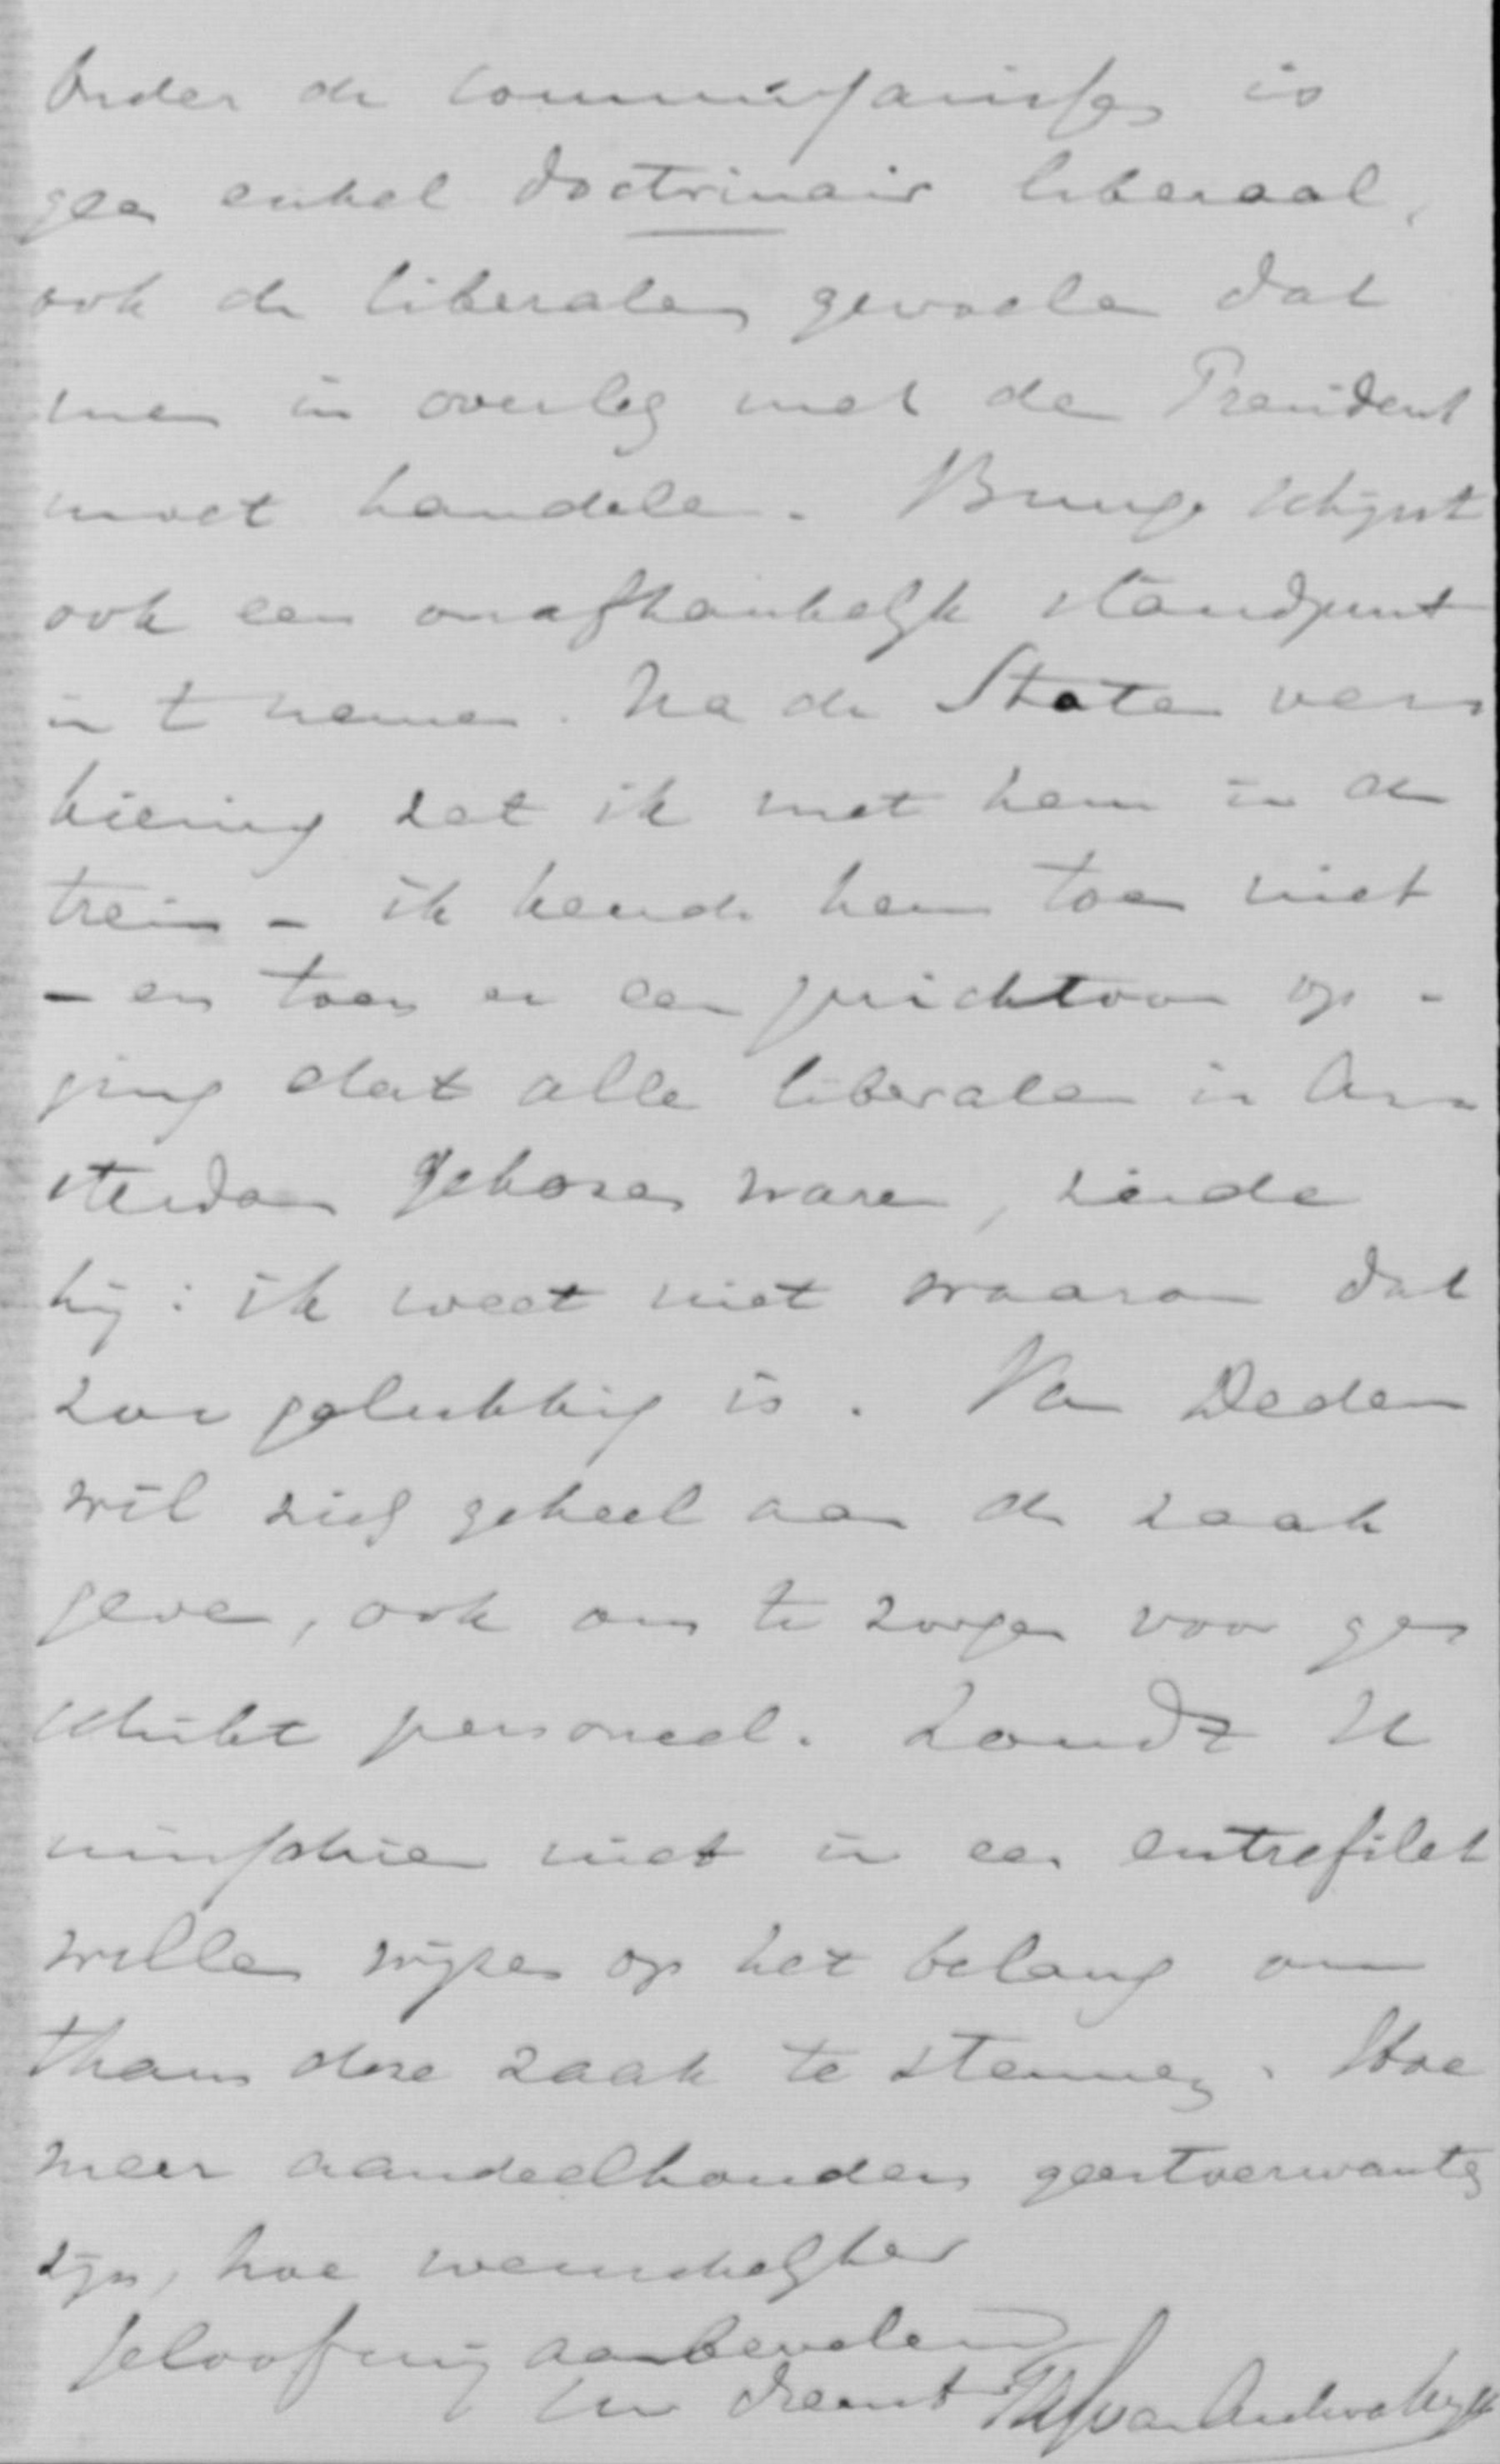 Onder de commissarissen is
geen enkel doctrinair liberaal,
ook de liberalen gevoelen dat
men in overleg met den President
moet handelen. Bunge schijnt
ook een onafhankelijk standpunt
in t nemen. Na de Staten ver
kiezing zat ik met hem in den
trein - ik kende hem toen niet
- en toen er een juichtoon op -
ging dat alle liberalen in Am
sterdam gekozen waren, zeide
hij: ik weet niet waarom dat
zoo gelukkig is. Van Dedem
wil zich geheel aan de zaak
geven, ook om te zorgen voor ge
schikt personeel. Zoudt U
misschien niet in een entrefilet
willen wijzen op het belang om
thans deze zaak te steunen. Hoe
meer aandeelhouders geestverwanten
zijn, hoe wenschelijker
Geloof mij aanbevelend
Uw dienst